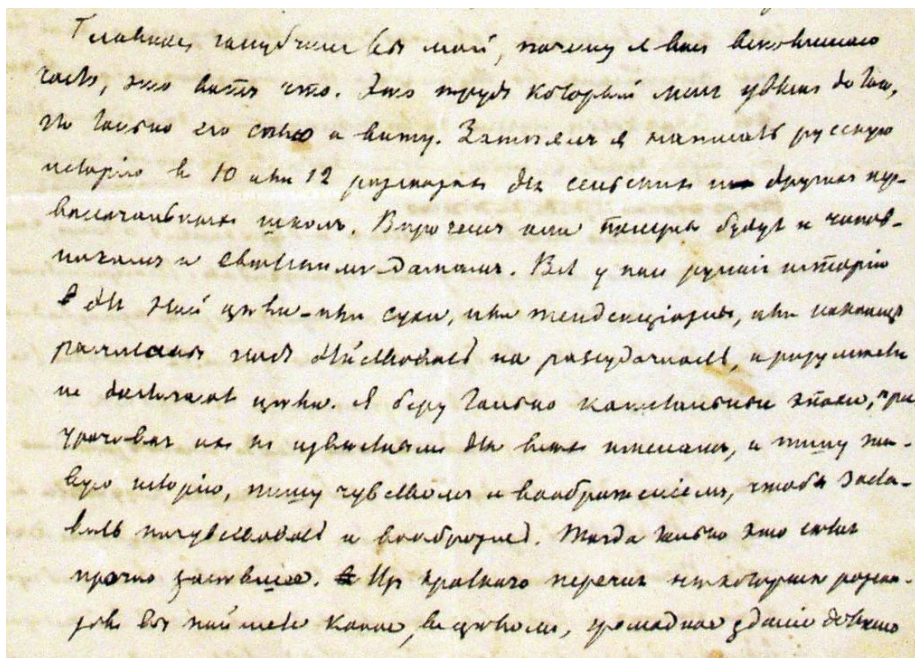 Главное голубчикъ вы мой, почему я васъ
часъ, это вотъ что. Это трудъ который меня увлекъ до того,
что только его и вижу. Затѣялъ я написать русскую
исторію въ 10 или 12 разсказахъ для сельскихъ и другихъ пер-
воначальныхъ школъ. Впрочемъ они полезны будутъ и чинов-
никамъ и свѣтскимъ дамамъ. Всѣ у насъ русскія исторіи
для этой цѣли или сухи, или тенденціозны, или наконецъ
дѣйствовать на разсудочность, и разумѣется
не достигаютъ цѣли. Я беру только капитальныя эпохи, прі
урочивая ихъ къ извѣстнымъ для всѣхъ именамъ, и пишу жи-
вую исторію, пишу чувствомъ и воображеніемъ, чтобы заста-
вить почувствовать и вообразить. Тогда только это
прочно. Изъ краткаго перечня нѣкоторыхъ разска-
зовъ вы поймете какое, въ цѣломъ, громадное зданіе должно